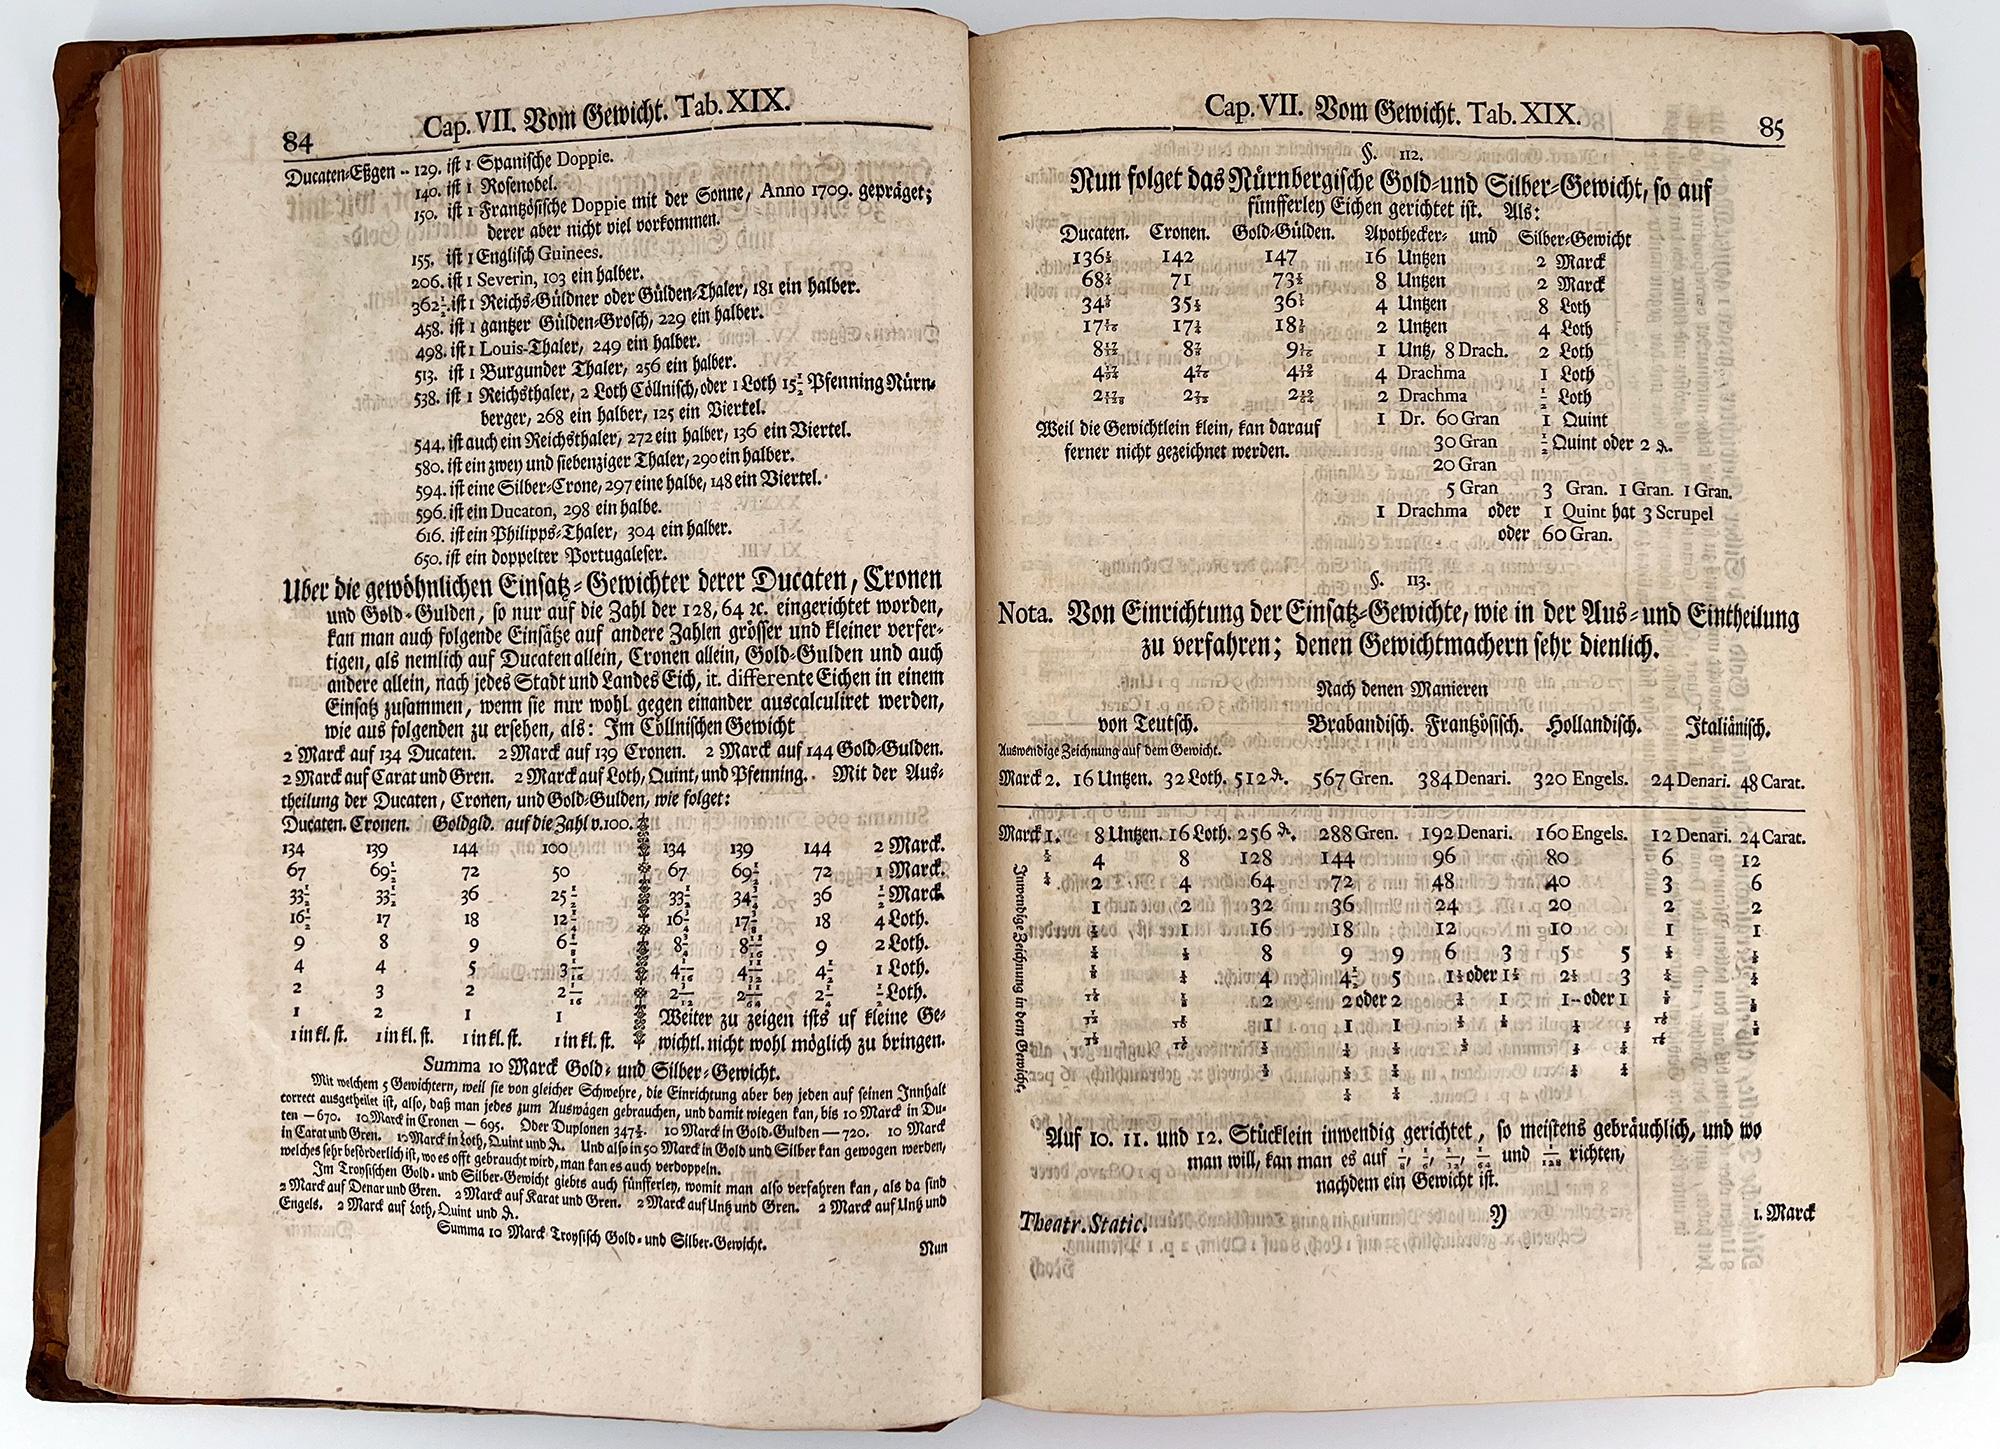 84 Cap. VII. Vom Gewicht. Tab. XIX.
Ducaten-Eßgen -- 129. ist 1 Spanische Doppie.
140. ist 1 Rosenobel.
150. ist 1 Frantzösische Doppie mit der Sonne, Anno 1709. gepräget;
derer aber nicht viel vorkommen.
155. ist 1 Englisch Guinees.
206. ist 1 Severin, 103 ein halber.
362½. ist 1 Reichs-Güldner oder Gülden-Thaler, 181 ein halber.
458. ist 1 gantzer Gülden-Grosch, 229 ein halber.
498. ist 1 Louis-Thaler, 249 ein halber.
513. ist 1 Burgunder Thaler, 256 ein halber.
538. ist 1 Reichsthaler, 2 Loth Cöllnisch, oder 1 Loth 15½ Pfenning Nürn-
berger, 268 ein halber, 125 ein Viertel.
544. ist auch ein Reichsthaler, 272 ein halber, 136 ein Viertel.
580. ist ein zwey und siebenziger Thaler, 290 ein halber.
594. ist eine Silber-Crone, 297 eine halbe, 148 ein Viertel.
596. ist ein Ducaton, 298 ein halbe.
616. ist ein Philipps-Thaler, 304 ein halber.
650. ist ein doppelter Portugaleser.
Uber die gewöhnlichen Einsatz-Gewichter derer Ducaten, Cronen
und Gold-Gulden, so nur auf die Zahl der 128, 64 ꝛc. eingerichtet worden,
kan man auch folgende Einsätze auf andere Zahlen grösser und kleiner verfer-
tigen, als nemlich auf Ducaten allein, Cronen allein, Gold-Gulden und auch
andere allein, nach jedes Stadt und Landes Eich, it. differente Eichen in einem
Einsatz zusammen, wenn sie nur wohl gegen einander auscalculiret werden,
wie aus folgenden zu ersehen, als: Im Cöllnischen Gewicht
2 Marck auf 134 Ducaten. 2 Marck auf 139 Cronen. 2 Marck auf 144 Gold-Gulden.
2 Marck auf Carat und Gren. 2 Marck auf Loth, Quint, und Pfenning. Mit der Aus-
theilung der Ducaten, Cronen, und Gold-Gulden, wie folget:
Ducaten. Cronen. Goldgld. auf die Zahl v. 100.
134 139 144 100 134 139 144 2 Marck.
67 69½ 72 50 67 69½ 72 1 Marck.
33½ 33½ 36 25½ 33½ 34¾ 36 ½ Marck.
16½ 17 18 12¼ 16¾ 17⅜ 18 4 Loth.
9 8 9 6⅛ 8¾ 8 11/16 9 2 Loth.
4 4 5 3 1/16 4 4 4½ 1 Loth.
2 3 2 2 1/16 2 1/12 2 2¼ ½ Loth.
1 2 1 1 Weiter zu zeigen ists uf kleine Ge-
1 in kl. st. 1 in kl. st. 1 in kl. st. 1 in kl. st. wichtl. nicht wohl möglich zu bringen.
Summa 10 Marck Gold- und Silber-Gewicht.
Mit welchem 5 Gewichtern, weil sie von gleicher Schwehre, die Einrichtung aber bey jeden auf seinen Innhalt
correct ausgetheilet ist, also, daß man jedes zum Auswägen gebrauchen, und damit wiegen kan, bis 10 Marck in Du-
ten — 670. 10 Marck in Cronen — 695. Oder Duplonen 347½. 10 Marck in Gold-Gulden — 720. 10 Marck
in Carat und Gren. 10 Marck in Loth, Quint und ₰. Und also in 50 Marck in Gold und Silber kan gewogen werden,
welches sehr beförderlich ist, wo es offt gebraucht wird, man kan es auch verdoppeln.
Im Troysischen Gold- und Silber-Gewicht giebts auch fünfferley, womit man also verfahren kan, als da sind
2 Marck auf Denar und Gren. 2 Marck auf Karat und Gren. 2 Marck auf Untz und Gren. 2 Marck auf Untz und
Engels. 2 Marck auf Loth, Quint und ₰.
Summa 10 Marck Troysisch Gold- und Silber-Gewicht.
Nun
Cap. VII. Vom Gewicht. Tab. XIX. 85
§. 112.
Nun folget das Nürnbergische Gold- und Silber-Gewicht, so auf
fünfferley Eichen gerichtet ist. Als:
Ducaten. Cronen. Gold-Gülden. Apothecker- und Silber-Gewicht
136½ 142 147 16 Untzen 2 Marck
68¼ 71 73½ 8 Untzen 2 Marck
34⅛ 35½ 36¾ 4 Untzen 8 Loth
17 1/16 17¾ 18⅜ 2 Untzen 4 Loth
8 17/32 8⅞ 9 3/16 1 Untz, 8 Drach. 2 Loth
4 17/64 4 7/16 4 19/32 4 Drachma 1 Loth
2 17/128 2 7/32 2 19/64 2 Drachma ½ Loth
1 Dr. 60 Gran 1 Quint
Weil die Gewichtlein klein, kan darauf
ferner nicht gezeichnet werden.
30 Gran ½ Quint oder 2 ₰.
20 Gran
5 Gran 3 Gran. 1 Gran. 1 Gran.
1 Drachma oder 1 Quint hat 3 Scrupel
oder 60 Gran.
§. 113.
Nota. Von Einrichtung der Einsatz-Gewichte, wie in der Aus- und Eintheilung
zu verfahren; denen Gewichtmachern sehr dienlich.
Nach denen Manieren
von Teutsch. Brabandisch. Frantzösisch. Hollandisch. Italiänisch.
Auswendige Zeichnung auf dem Gewicht.
Marck 2. 16 Untzen. 32 Loth. 512 ₰. 567 Gren. 384 Denari. 320 Engels. 24 Denari. 48 Carat.
Marck 1. 8 Untzen. 16 Loth. 256 ₰. 288 Gren. 192 Denari. 160 Engels. 12 Denari. 24 Carat.
Inwendige Zeichnung in dem Gewichte.
½ 4 8 128 144 96 80 6 12
¼ 2 4 64 72 48 40 3 6
1 2 32 36 24 20 2 2
½ 1 16 18 12 10 1 1
¼ ½ 8 9 9 6 3 5 5 ½ ½
⅛ ¼ 4 4½ 5 1½ oder 1½ 2½ 3 ¼ ¼
1/16 ⅛ 2 2 oder 2 ½ 1 1 -- oder 1 ⅛ ⅛
1/32 1/16 1 1 1 ½ ½ ½ ½ 1/16
½ ½ ½ ½
½ ½
Auf 10. 11. und 12. Stücklein inwendig gerichtet, so meistens gebräuchlich, und wo
man will, kan man es auf ⅛, ⅙, 1/12, 1/64 und 1/128 richten,
nachdem ein Gewicht ist.
Theatr. Static. Y 1. Marck